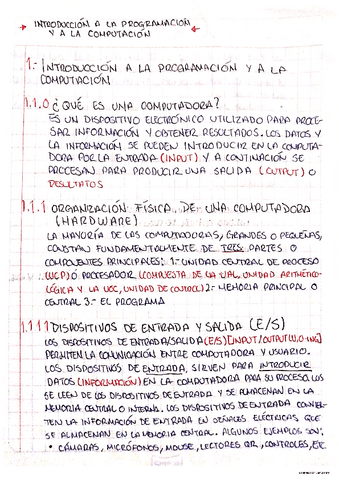 INTRODUCCIÓN A LA PROGRAMACIÓN
Y A LA COMPUTACIÓN
1.- INTRODUCCIÓN A LA PROGRAMACIÓN Y A LA
COMPUTACIÓN
1.1.0 ¿QUÉ ES UNA COMPUTADORA?
ES UN DISPOSITIVO ELECTRÓNICO UTILIZADO PARA PROCE-
SAR INFORMACIÓN Y OBTENER RESULTADOS. LOS DATOS Y
LA INFORMACIÓN SE PUEDEN INTRODUCIR EN LA COMPUTA-
DORA POR LA ENTRADA (INPUT) Y A CONTINUACIÓN SE
PROCESAN PARA PRODUCIR UNA SALIDA (OUTPUT) O
RESULTADOS
1.1.1 ORGANIZACIÓN FÍSICA DE UNA COMPUTADORA
(HARDWARE)
LA MAYORÍA DE LAS COMPUTADORAS, GRANDES O PEQUEÑAS,
CONSTAN FUNDAMENTALMENTE DE TRES PARTES O
COMPONENTES PRINCIPALES: 1.- UNIDAD CENTRAL DE PROCESO
(UCP) Ó PROCESADOR (COMPUESTA DE LA UAL, UNIDAD ARITMÉTICO-
LÓGICA Y LA UCC, UNIDAD DE CONTROL) 2.- MEMORIA PRINCIPAL O
CENTRAL 3.- EL PROGRAMA
1.1.1.1 DISPOSITIVOS DE ENTRADA Y SALIDA (E/S)
LOS DISPOSITIVOS DE ENTRADA/SALIDA (E/S) [INPUT/OUTPUT
PERMITEN LA COMUNICACIÓN ENTRE COMPUTADORA Y USUARIO.
LOS DISPOSITIVOS DE ENTRADA, SIRVEN PARA INTRODUCIR
DATOS (INFORMACIÓN) EN LA COMPUTADORA PARA SU PROCESO. LOS
SE LEEN DE LOS DISPOSITIVOS DE ENTRADA Y SE ALMACENAN EN LA
MEMORIA CENTRAL O INTERNA. LOS DISPOSITIVOS DE ENTRADA CONVIER-
TEN LA INFORMACIÓN DE ENTRADA EN SEÑALES ELÉCTRICAS QUE
SE ALMACENAN EN LA MEMORIA CENTRAL. ALGUNOS EJEMPLOS SON:
* CÁMARAS, MICRÓFONOS, MOUSE, LECTORES QR, CONTROLES, ETC